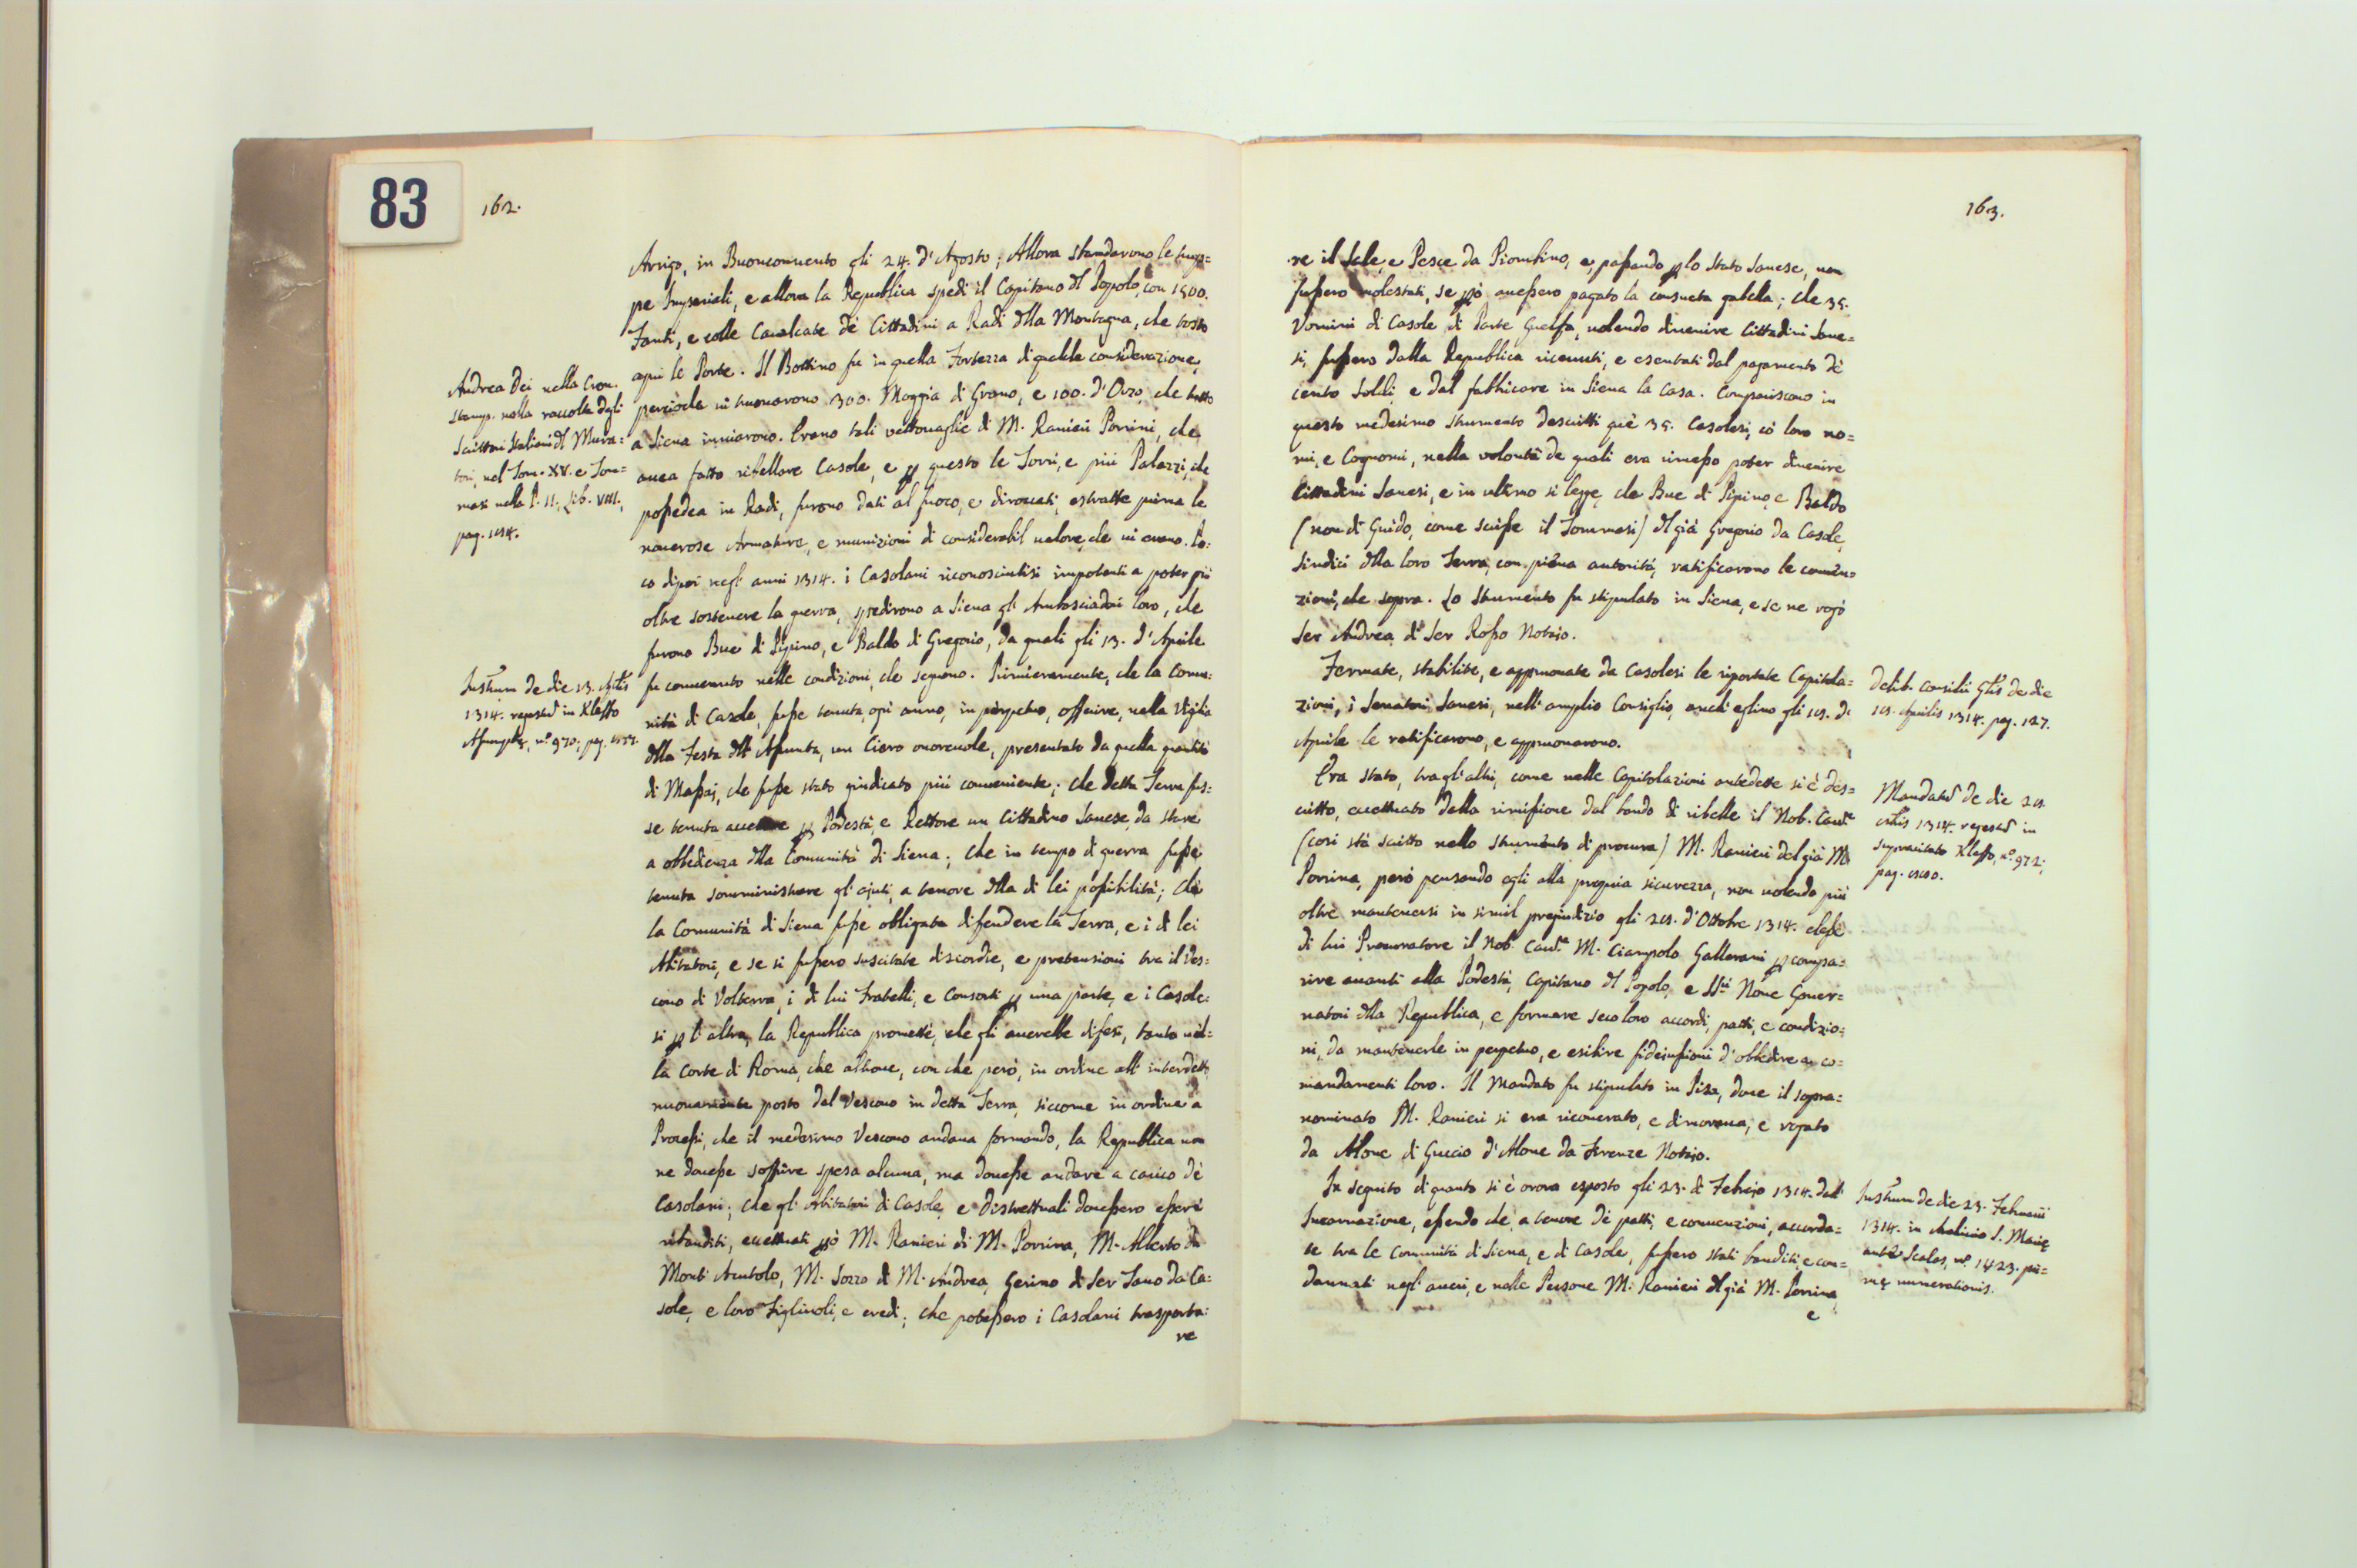 83
162.
Arrigo, in Buonconvento gli 24. d'Agosto; Allora sbandarono le trup=
pe Imperiali, e allora la Republica spedì il Capitano dl Popolo, con 1500.
Fanti, e colle Cavalcate de Cittadini a Radi dlla Montagna, che tosto
aprì le Porte. Il Bottino fu in quella Fortezza di qualche considerazione,
perciocche vi trouarono 300. Moggia di Grano, e 100. d'Orzo, che tutto
a Siena inuiarono. Erano tali vettouaglie di M. Ranieri Porrini, che
auea fatto ribellare Casole, e p questo le Torri, e più Palazzi, che
possedea in Radi, furono dati al fuoco, e diroccati, estratte prima le
numerose Armature, e munizioni di considerabil ualore, che ui erano. Po:
co dipoi negl' anni 1314. i Casolani riconosciutisi impotenti a poter più
oltre sostenere la guerra, spedirono a Siena gl' Ambasciadori loro, che
furono Bue di Pipino, e Baldo di Gregorio, da quali gli 13. d'Aprile
fu conuenuto nelle condizioni, che seguono. Primieramente, che la Comu:
nità di Casole, fusse tenuta, ogni anno, in perpetuo, offerire, nella Vigilia
dlla Festa dll' Assunta, un Ciero onoreuole, presentato da quella quantità
di Massaj, che fusse stato giudicato più conueniente; che detta Terra fus=
se tenuta accettare p Podestà, e Rettore un Cittadino Sanese, da stare
a obbedienza dlla Comunità di Siena; Che in tempo di guerra fusse
tenuta somministrare gl' ajuti, a tenore dlla di lei possibilità; Che
la Comunità di Siena fusse obligata difendere la Terra, e i di lei
Abitatori, e se si fussero suscitate discordie, e pretensioni tra il Ves=
couo di Volterra, i di lui Fratelli, e Consorti p una parte, e i Casole:
si p l'altra, la Republica promette, che gli auerebbe difesi, tanto nel=
la Corte di Roma, che altroue, con che però, in ordine all' interdetto
nuouamente posto dal Vescouo in detta Terra, siccome in ordine a
Processi, che il medesimo Vescouo andaua formando, la Republica non
ne douesse soffrire spesa alcuna, ma douesse andare a carico de
Casolani; che gl' Abitatori di Casole, e Distrettuali douessero essere
ribanditi, eccettuati pò M. Ranieri di M. Porrina, M. Alberto da
Monti Acutolo, M. Sozzo di M. Andrea, Gerino di Ser Tano da Ca=
sole, e loro Figliuoli, e eredi; che potessero i Casolani trasporta:
re
Andrea Dei nella Cron.
stamp. nella raccolta degli
Scrittori Italiani dl Mura=
tori, nel Tom. XV. e Tom=
masi nella P. II. Lib. VIII.,
Instrum de die 13. Aplis
1314. regestu in Kleffo
163.
re il Sale, e Pesce da Piombino, e, passando p lo Stato Sanese, non
fussero molestati, se pò auessero pagato la consueta gabella; che 35.
Vomini di Casole di Parte Guelfa, uolendo diuenire Cittadini Sane=
si, fussero dalla Republica riceuuti, e esentati dal pagamento de
cento soldi, e dal fabbricare in Siena la Casa. Compariscono in
questo medesimo strumento descritti que 35. Casolesi, cò loro no=
mi, e Cognomi, nella volontà de quali era rimesso poter diuenire
Cittadini Sanesi, e in ultimo si legge, che Bue di Pipino, e Baldo
(non di Guido, come scrisse il Tommasi) dl già Gregorio da Casole,
Sindici dlla loro Terra, con piena autorità, ratificarono le conuen=
zioni, che sopra. Lo Strumento fu stipulato in Siena, e se ne rogò
Ser Andrea di Ser Rosso Notaio.
Fermate, stabilite, e approuate da Casolesi le riportate Capitola=
zioni, i Senatori Sanesi, nell' amplio Consiglio, anch' eglino gli 15. d'
Aprile le ratificarono, e approuarono.
Era stato, tra gl' altri, come nelle Capitolazioni antedette si è des=
critto, eccettuato dalla rimissione dal bando di ribelle il Nob. Caur.
(così stà scritto nello strumento di procura) M. Ranieri del già M.
Porrina, però pensando egli alla propria sicurezza, non uolendo più
oltre mantenersi in simil pregiudizio gli 25. d'Ottobre 1314. elesse
di lui Procuratore il Nob. Caur. M. Ciampolo Gallerani p compa=
rire auanti alla Podestà, Capitano dl Popolo, e SSri Noue Gouer=
natori dlla Republica, e formare seco loro accordi, patti, e condizio=
ni, da mantenerle in perpetuo, e esibire fideiussioni d'obbedire a co=
mandamenti loro. Il Mandato fu stipulato in Pisa, doue il sopra=
nominato M. Ranieri si era ricouerato, e dimoraua, e rogato
da Alone di Guccio d'Alone da Firenze Notaio.
In seguito di quanto si è ora esposto gli 23. di Febraio 1314. dall'
Incarnazione, essendo che, a tenore de patti, e conuenzioni, accorda=
te tra le Comunità di Siena, e di Casole, fussero stati banditi, e con=
dannati negl' aueri, e nelle Persone M. Ranieri dl già M. Porrina,
e
Delib. Consilii Glis de die
15. Aprilis 1314. pag. 127.
Mandatu de die 25.
1314. regestu in
supracitato Kleffo, nº. 972;
Instrum de die 23. Februarii
1314. in Archivio S. Marię
ante Scalas, nº. 1423. pri=
mę numerationis.